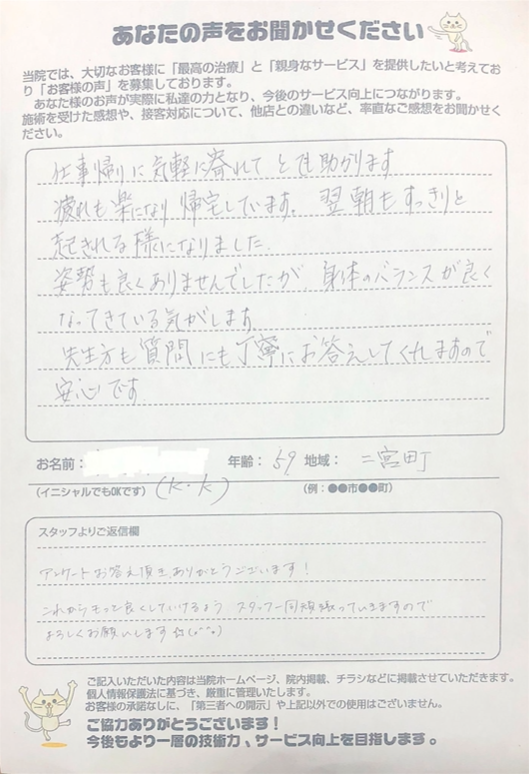 あなたの声をお聞かせください
当院では、大切なお客様に「最高の治療」と「親身なサービス」を提供したいと考えてお
り「お客様の声」を募集しております。
あなた様のお声が実際に私達の力となり、今後のサービス向上につながります。
施術を受けた感想や、接客対応について、他店との違いなど、率直なご感想をお聞かせく
ださい。
仕事帰りに気軽に寄れて とても助かります
疲れも楽になり 帰宅しています。 翌朝もすっきりと
起きれる様になりました。
姿勢も良くありませんでしたが、身体のバランスが良く
なってきている気がします。
先生方も質問にも丁寧にお答えしてくれますので
安心です
お名前: 年齢: 59 地域: 二宮町
(イニシャルでもOKです) (K・K) (例:●●市●●町)
スタッフよりご返信欄
アンケートお答え頂き、ありがとうございます!
これからもっと良くしていけるよう スタッフ一同頑張っていきますので
よろしくお願いします
ご記入いただいた内容は当院ホームページ、院内掲載、チラシなどに掲載させていただきます。
個人情報保護法に基づき、厳重に管理いたします。
お客様の承諾なしに、「第三者への開示」や上記以外での使用はございません。
ご協力ありがとうございます!
今後もより一層の技術力、サービス向上を目指します。